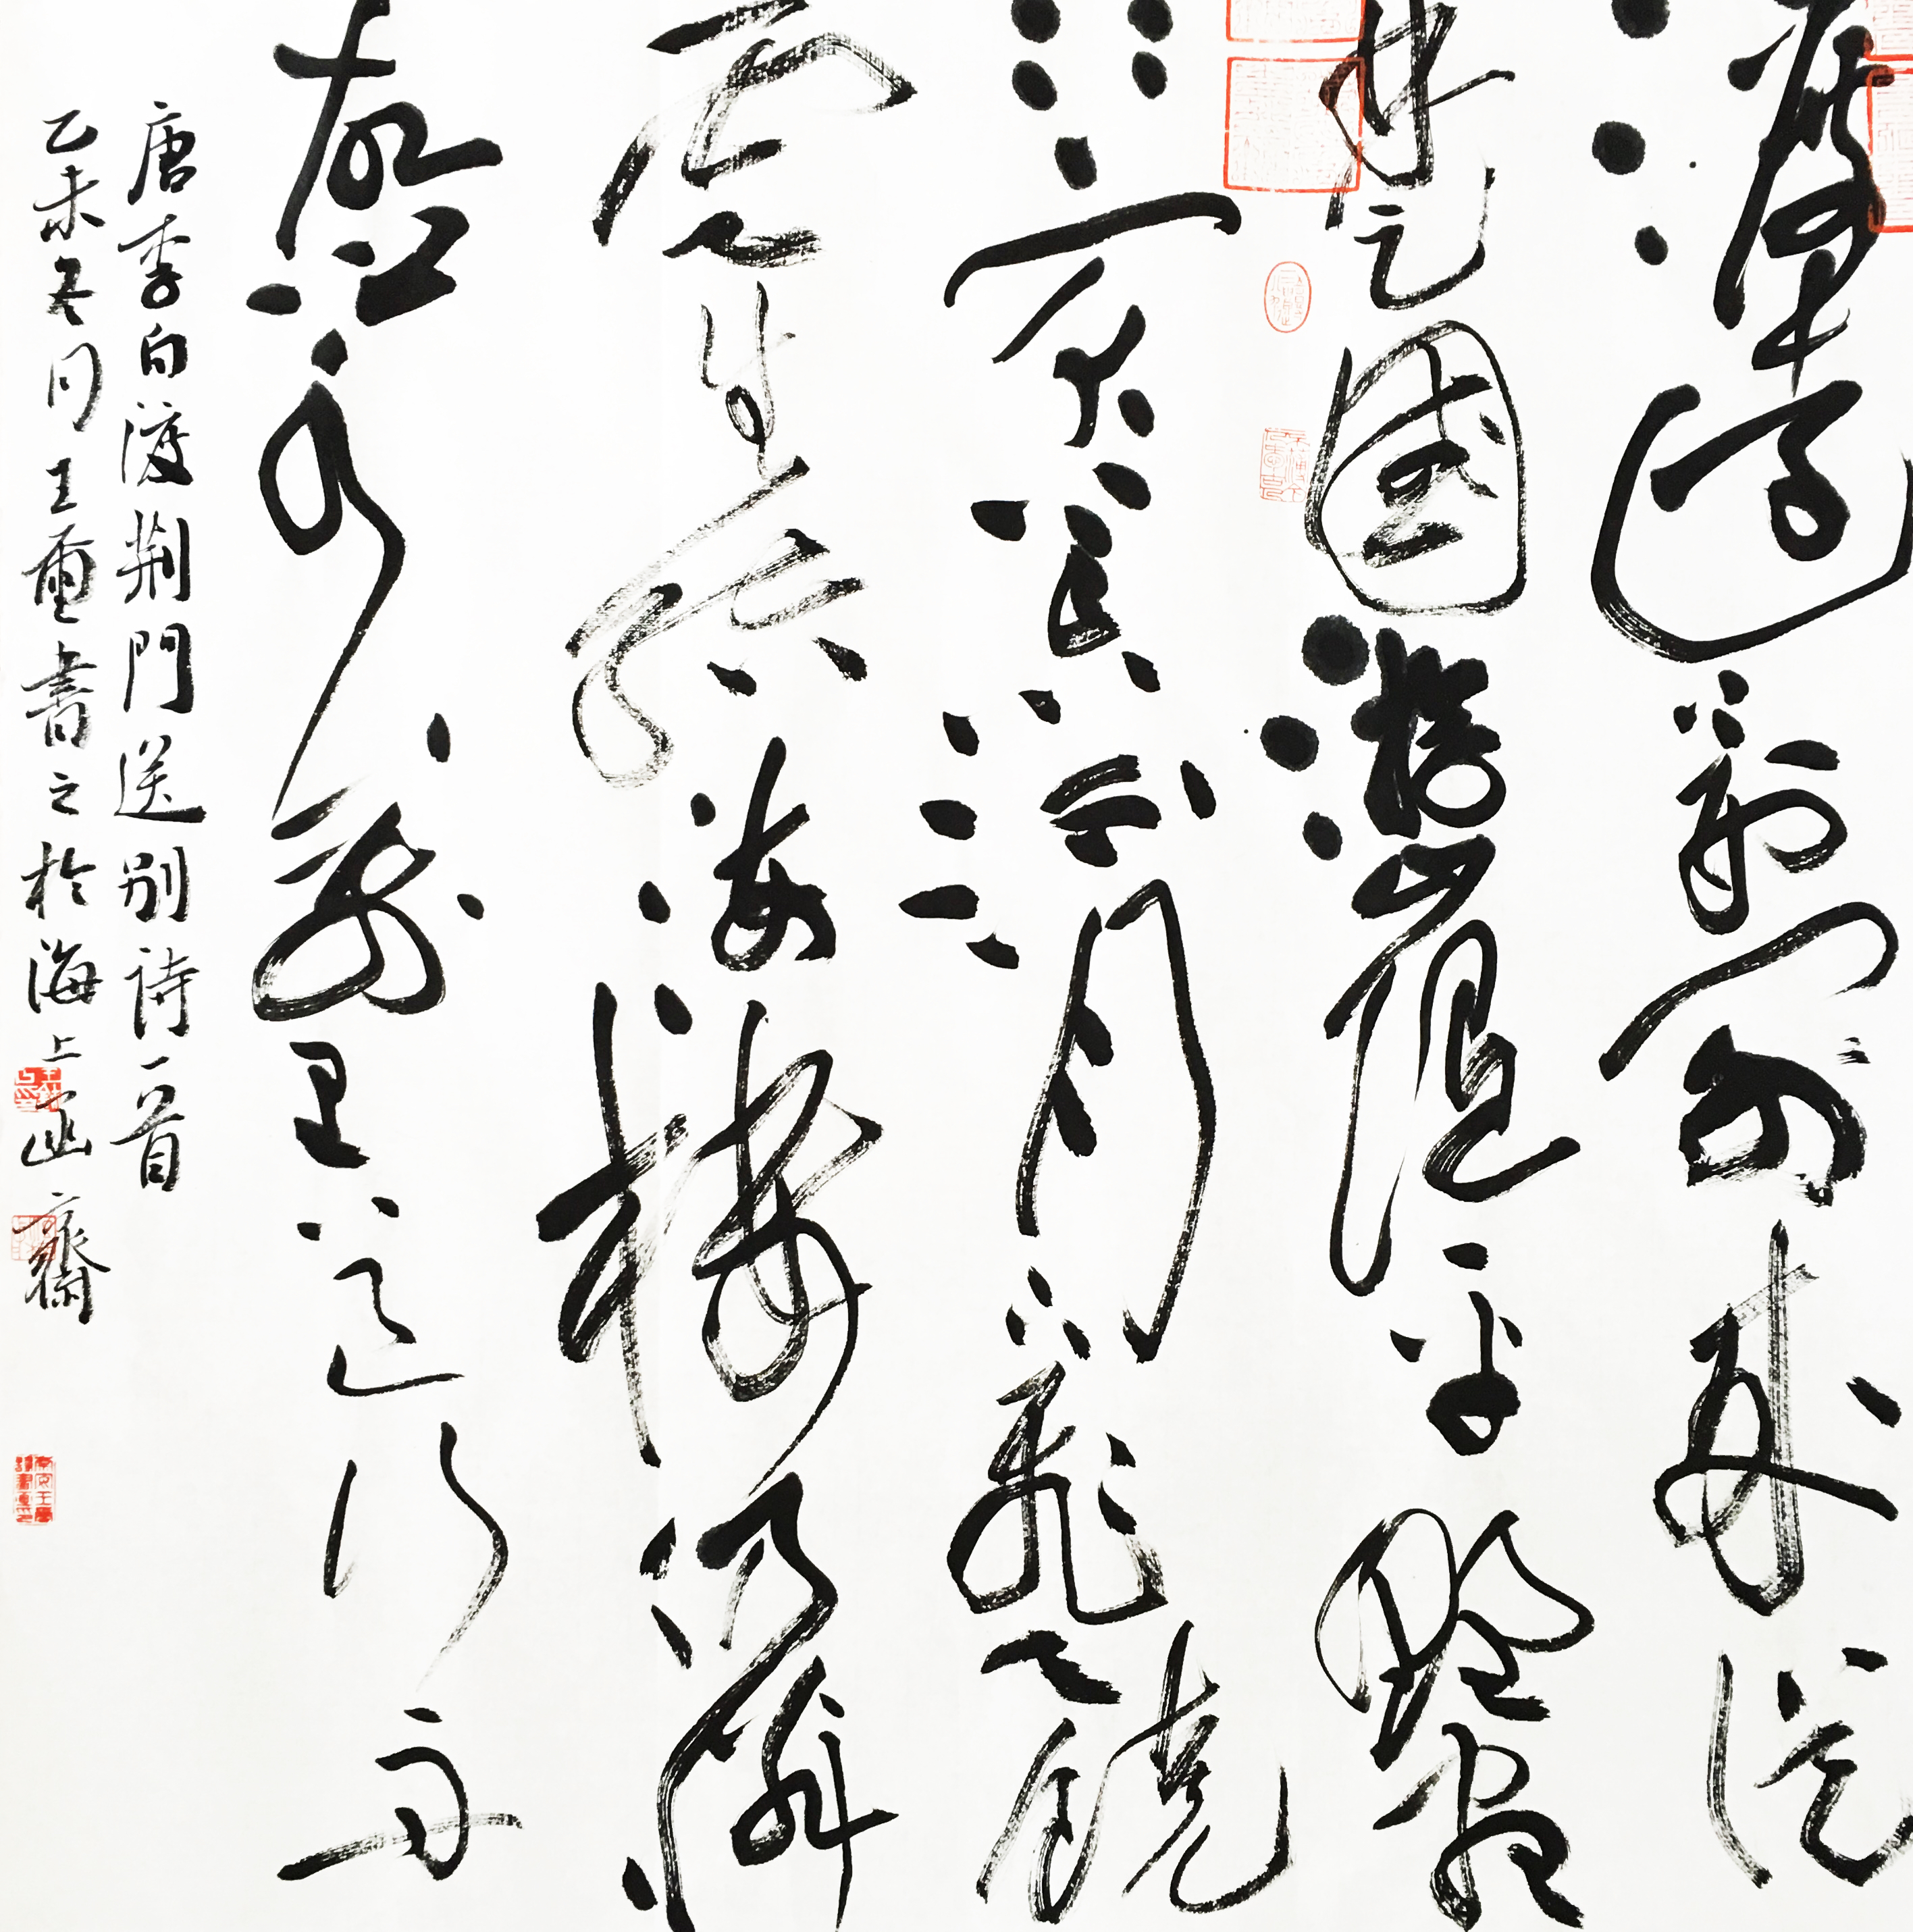 渡遠荊門外來從
楚國遊山隨平野盡
江入大荒流月下飛天鏡
雲生結海樓仍憐
故鄉水萬里送行舟
唐李白渡荆門送別詩一首
乙未冬月王書之於海上齋